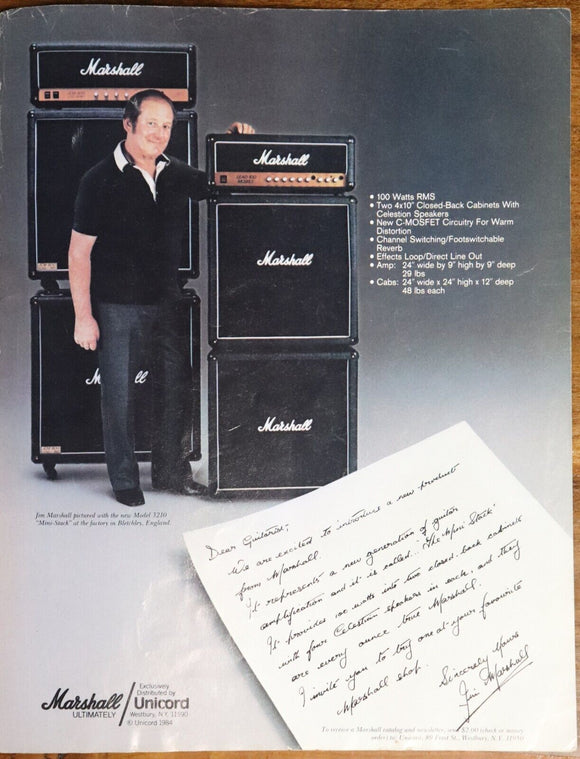 Marshall
Marshall
LEAD 100
MOSFET
Marshall
Marshall
• 100 Watts RMS
• Two 4x10" Closed-Back Cabinets With
Celestion Speakers
• New C-MOSFET Circuitry For Warm
Distortion
• Channel Switching/Footswitchable
Reverb
• Effects Loop/Direct Line Out
• Amp: 24" wide by 9" high by 9" deep
29 lbs
• Cabs: 24" wide x 24" high x 12" deep
48 lbs each
Jim Marshall pictured with the new Model 3210
"Mini-Stack" at the factory in Bletchley, England.
Dear Guitarist,
We are excited to introduce a new product
from Marshall.
It represents a new generation of guitar
amplification and it is called... 'The Mini Stack'
It provides 100 watts into two closed-back cabinets
with four Celestion speakers in each, and they
are every ounce true Marshall.
I invite you to try one at your favourite
Marshall shop.
Sincerely Yours
Jim Marshall
Marshall
ULTIMATELY
Exclusively
Distributed by
Unicord
Westbury, N.Y. 11590
© Unicord 1984
To receive a Marshall catalog and newsletter, send $2.00 (check or money
order) to: Unicord, 89 Frost St., Westbury, N.Y. 11590